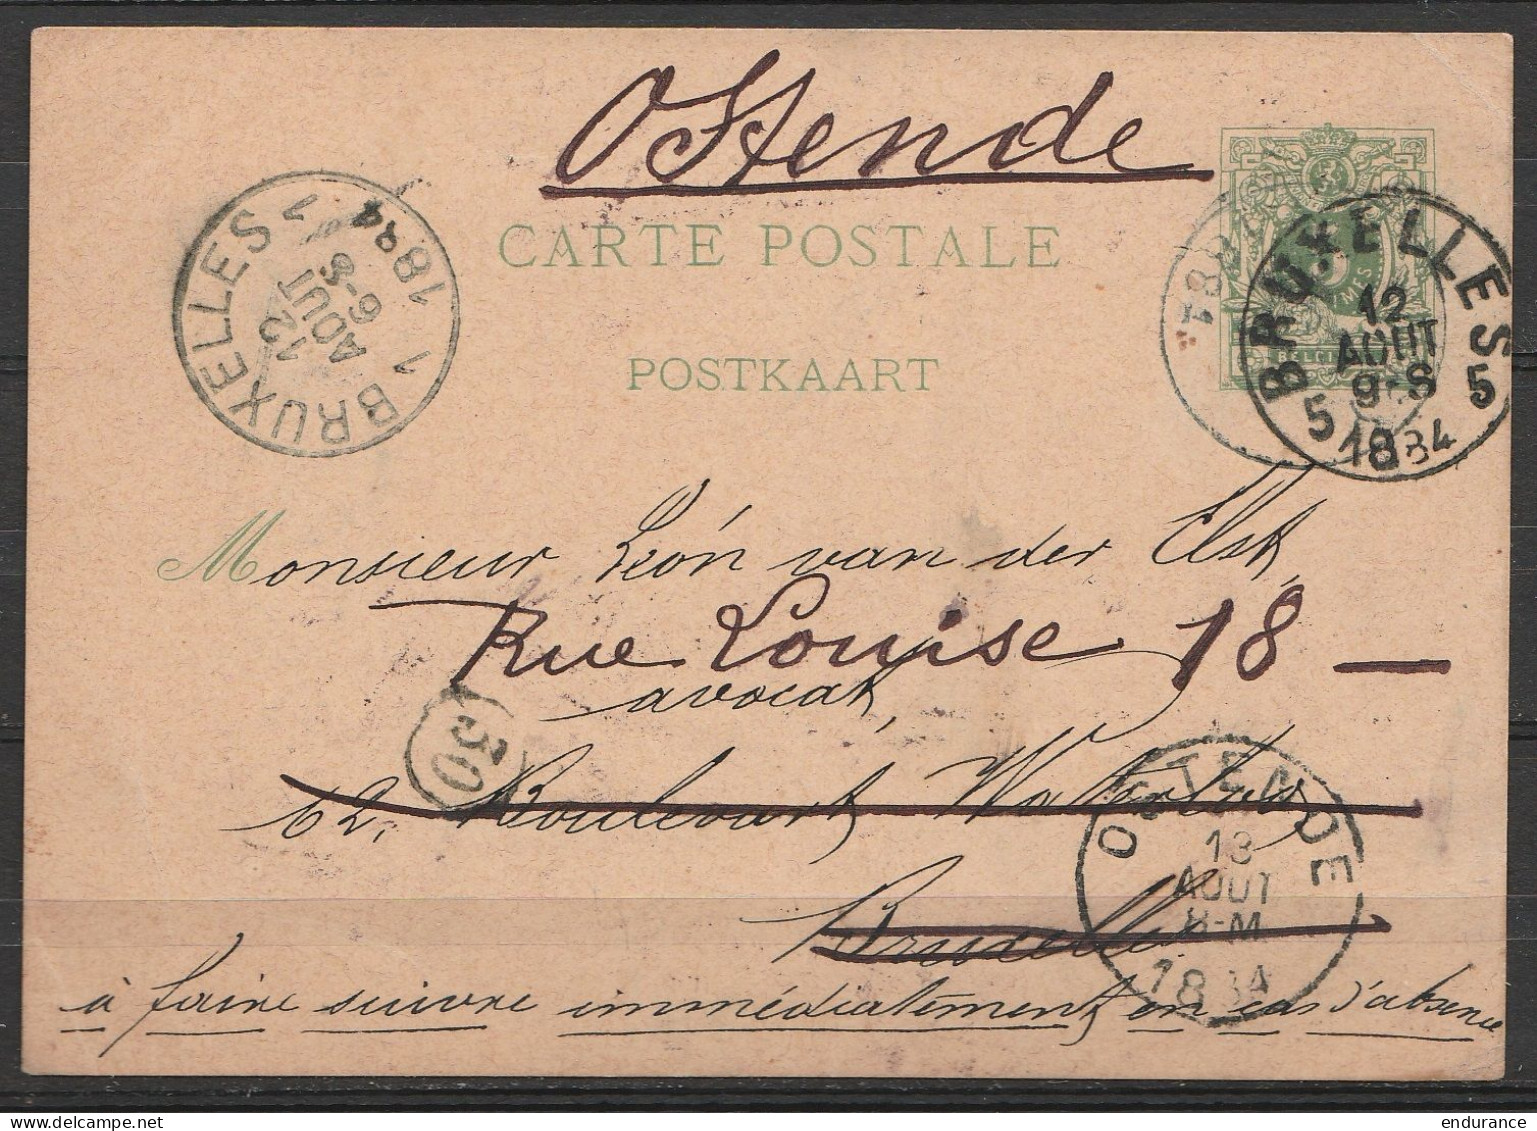 Ostende
CARTE POSTALE
POSTKAART
BRUXELLES 1
12
AOUT
6-S
1884
1
BRUXELLES
12
AOUT
9-S
5 1884 5
BELGI
Monsieur Léon van der Elst,
Rue Louise 18 —
avocat,
30
62, Boulevart Waterloo
Bruxelles
OSTENDE
13
AOUT
8-M
1884
à faire suivre immédiatement en cas d'absence
endurance